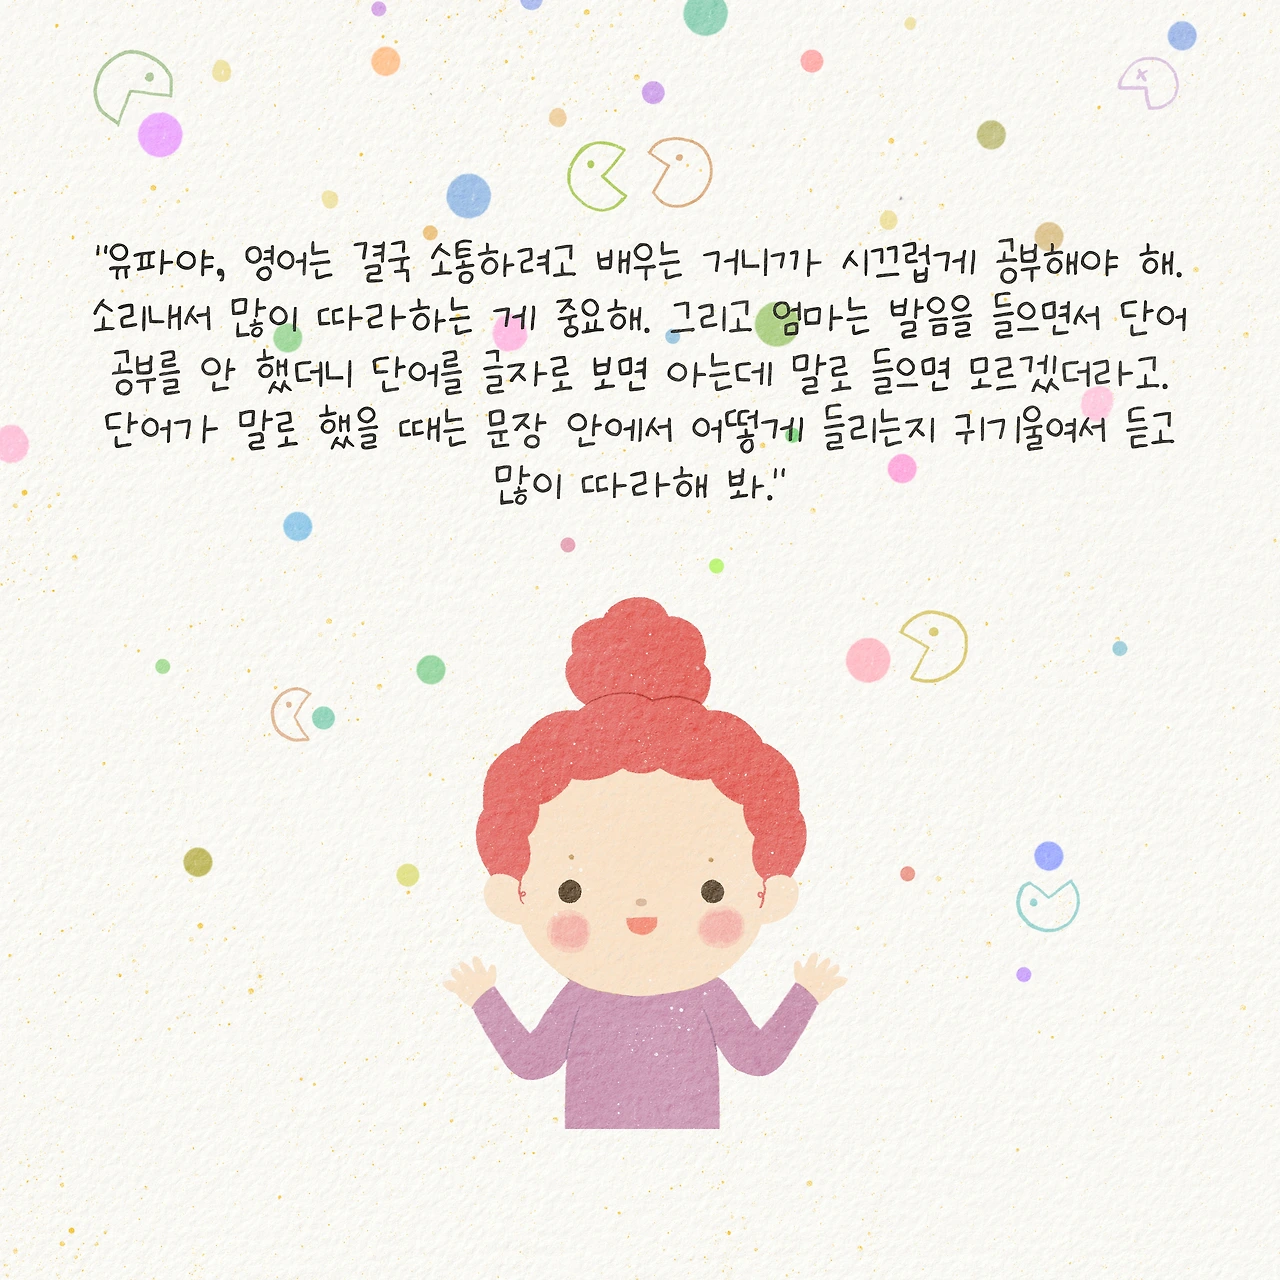 "유파야, 영어는 결국 소통하려고 배우는 거니까 시끄럽게 공부해야 해.
소리내서 많이 따라하는 게 중요해. 그리고 엄마는 발음을 들으면서 단어
공부를 안 했더니 단어를 글자로 보면 아는데 말로 들으면 모르겠더라고.
단어가 말로 했을 때는 문장 안에서 어떻게 들리는지 귀기울여서 듣고
많이 따라해 봐."